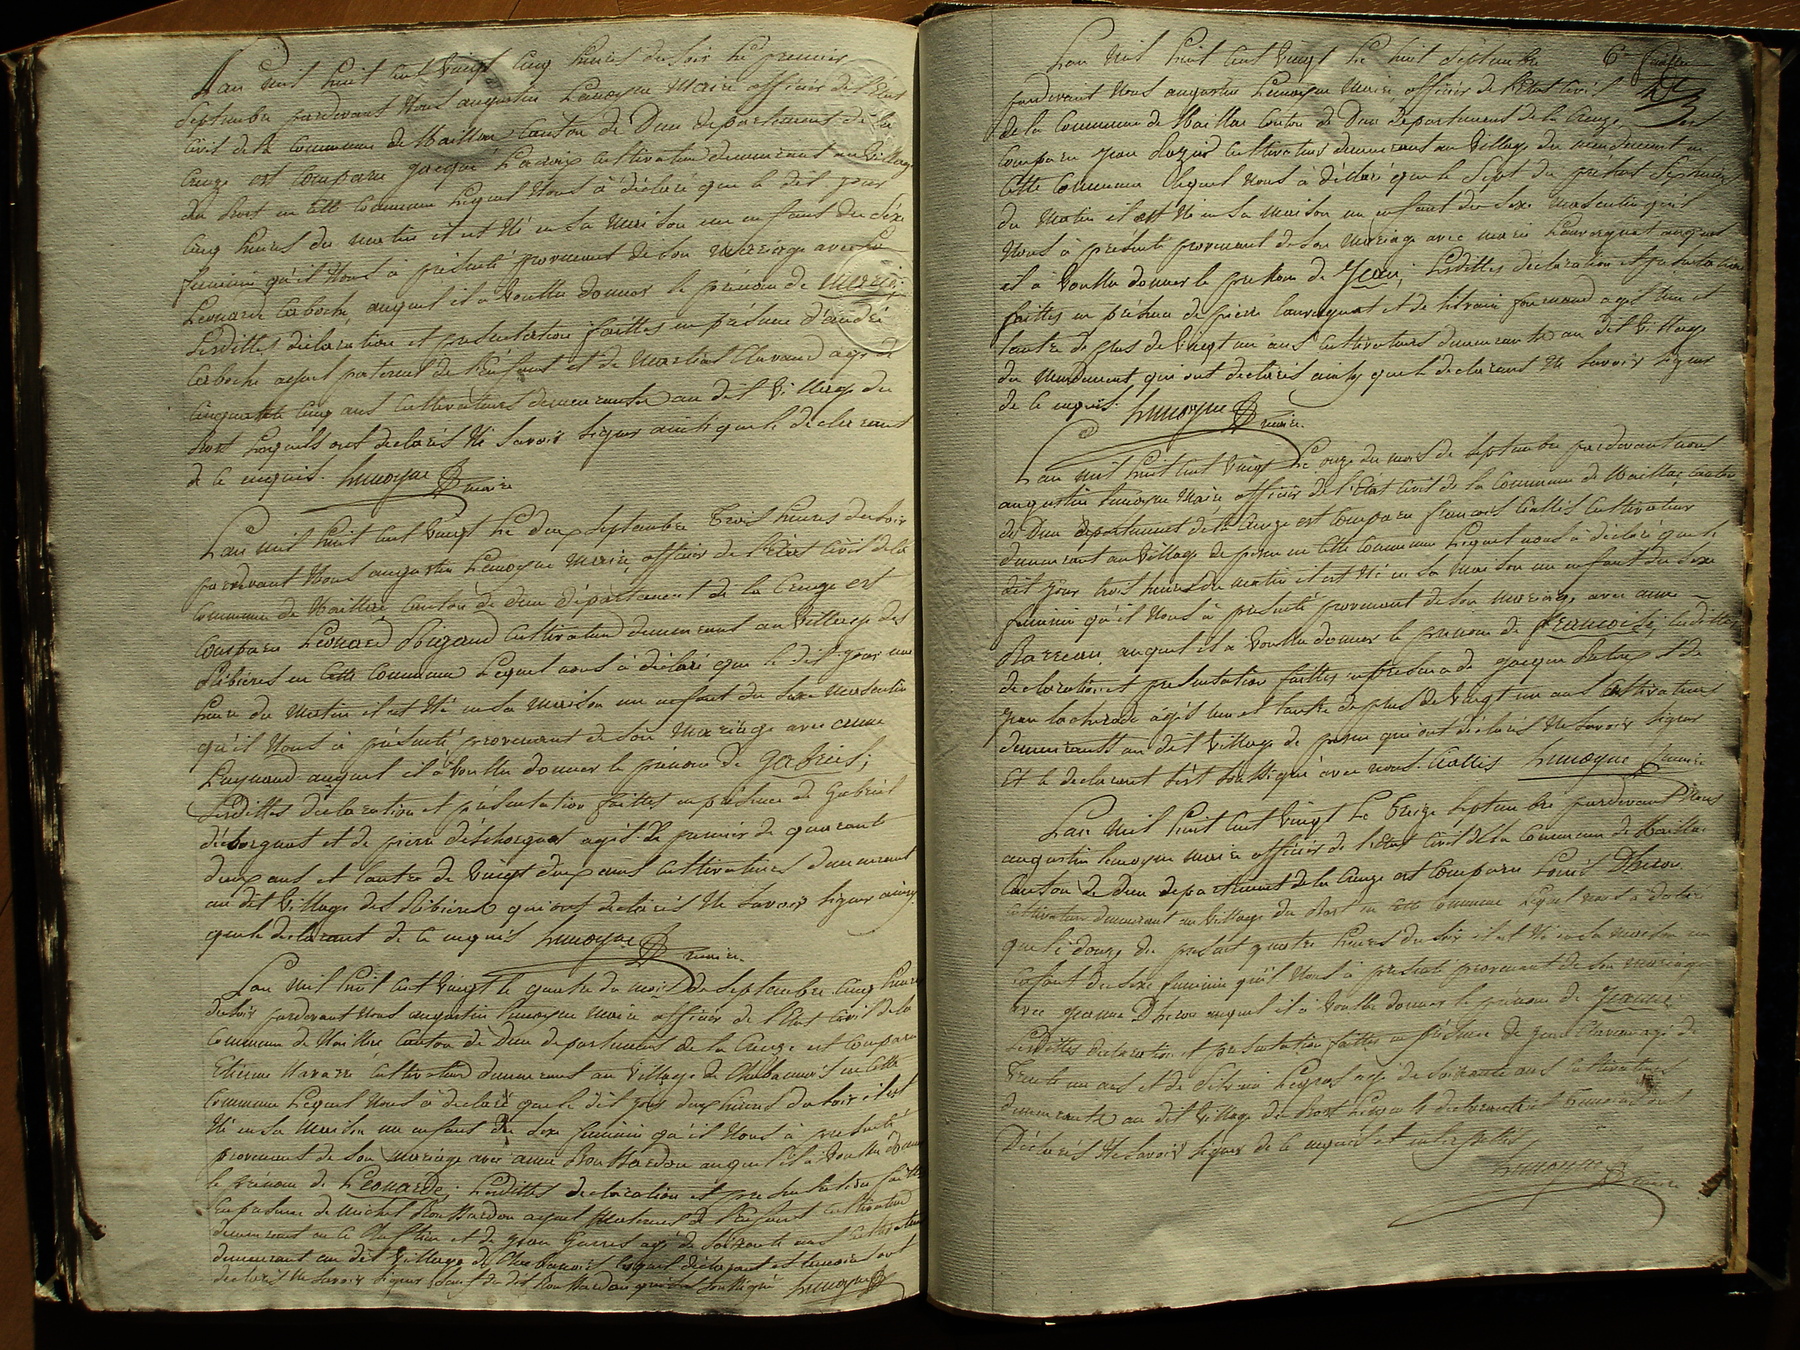 Lan mil huit cent vingt cinq heures du soir le premier
Septembre pardevant Nous augustin Lemoyne Maire officier de l'Etat
Civil de la Commune de Maillac Canton de Dun departement de la
Creuze est Comparu jacque Lacroix Cultivateur demeurant au Village
du Bost en cette Commune Lequel Nous à déclaré que le dit jour
Cinq heures du matin il est Né en sa Maison un enfant du séxe
feminin qu'il Nous à présenté provenant de son mariage avec
Leonarde Laboche, auquel il a Voullu donner le prénom de Marie;
Lesdittes déclaration et présentation faittes en présence d'andré
Laboche ayeul paternel de l'Enfant et de Martial Clavaud agé de
Cinquante Cinq ans Cultivateurs demeurants au dit Village du
Bost Lesquels ont declarés Ne Savoir Signer ainsi que le declarant
de ce enquis. Lemoyne maire
Lan mil huit cent Vingt Le deux Septembre trois heures du soir
pardevant Nous augustin Lemoyne Maire, officier de l'Etat Civil de la
Commune de Maillac Canton de Dun département de la Creuze est
Comparu Leonard Rigaud Cultivateur demeurant au Village des
Ribieres en Cette Commune Lequel nous à déclaré que le dit jour une
heure du Matin il est Né en sa Maison un enfant du sexe Masculin
qu'il Nous à présenté provenant de son Mariage avec anne
auquel il à Voullu donner le prénom de Gabriel;
Lesdittes declaration et présentation faittes en présence de Gabriel
et de pierre agés le premier de quarante
deux ans et lautre de Vingt deux ans Cultivateurs demeurant
au dit Village des Ribieres qui ont declarés Ne Savoir Signer ainsy
que le declarant de ce enquis Lemoyne maire
Lan mil huit cent Vingt le quatre du mois de Septembre Cinq heures
du soir pardevant Nous augustin Lemoyne maire officier de l'Etat Civil de la
Commune de Maillac Canton de Dun departement de la Creuze est Comparu
Etienne Cultivateur demeurant au Village de Chabannois en Cette
Commune Lequel Nous à declaré que le dit jour deux heures du soir il est
Né en sa Maison un enfant du sexe feminin qu'il Nous à présenté
provenant de son Mariage avec anne auquel il à Voullu donner
le prénom de Leonarde; Lesdittes declaration et presentation faittes
en présence de Michel ayeul Maternel de l'Enfant Cultivateur
demeurant et de jean agé de Soixante ans Cultivateur
demeurant au dit Village de Chabannois Lesquels déclarant et temoins ont
declarés Ne Savoir Signer Sauf du dit qui soussigné Lemoyne
6e feuillet
Lan mil huit cent Vingt Le huit Septembre
pardevant Nous augustin Lemoyne Maire, officier de l'Etat Civil
de la Commune de Maillac Canton de Dun departement de la Creuze est
Comparu jean Cultivateur demeurant au Village du mendement en
Cette Commune Lequel Nous à déclaré que le Sept du présent Septembre
du Matin il est Né en sa Maison un enfant du Sexe Masculin qu'il
Nous à présenté provenant de son Mariage avec marie auquel
il à Voullu donner le prenom de Jean; Lesdittes déclaration et présentation
faittes en présence de pierre et de Silvain agés l'un et
lautre de plus de Vingt un ans Cultivateurs demeurants au dit Village
du Mendement qui ont declarés ainsy que le declarant Ne Savoir Signer
de ce enquis. Lemoyne maire.
Lan mil huit cent Vingt Le onze du mois de Septembre pardevant nous
augustin Lemoyne Maire officier de l'Etat Civil de la Commune de Maillac Canton
de Dun departement de la Creuze est Comparu francois Callis Cultivateur
demeurant au Village de en Cette Commune Lequel nous à déclaré que le
dit jour trois heures du matin il est Né en sa Maison un enfant du Sexe
féminin qu'il Nous à présenté provenant de son mariage avec anne
auquel il à Voullu donner le prenom de françoise; Lesdittes
declaration et presentation faittes en présence de jacque et de
jean agés l'un et lautre de plus de Vingt un ans Cultivateurs
demeurants au dit Village de qui ont declarés Ne Savoir Signer
Et le declarant s'est Soussigné avec nous. Callis Lemoyne maire
Lan Mil huit cent Vingt Le treize Septembre pardevant Nous
augustin Lemoyne maire officier de l'Etat Civil de la Commune de Maillac
Canton de Dun departement de la Creuze est Comparu Louis Dheron
Cultivateur demeurant au Village du Bost en Cette Commune Lequel nous à déclaré
que le douze du présent quatre heures du Soir il est Né en sa Maison un
enfant du Sexe feminin qu'il Nous à présenté provenant de son mariage
avec jeanne Dheron auquel il à Voullu donner le prénom de Jeanne;
Lesdittes declaration et presentation faittes en présence de jean agé de
trente un ans et de Silvain Legros agé de Soixante ans Cultivateurs
demeurants au dit Village du Bost Lesquels declarant et temoins ont
Déclarés Ne Savoir Signer de ce enquis et interpellés
Lemoyne maire